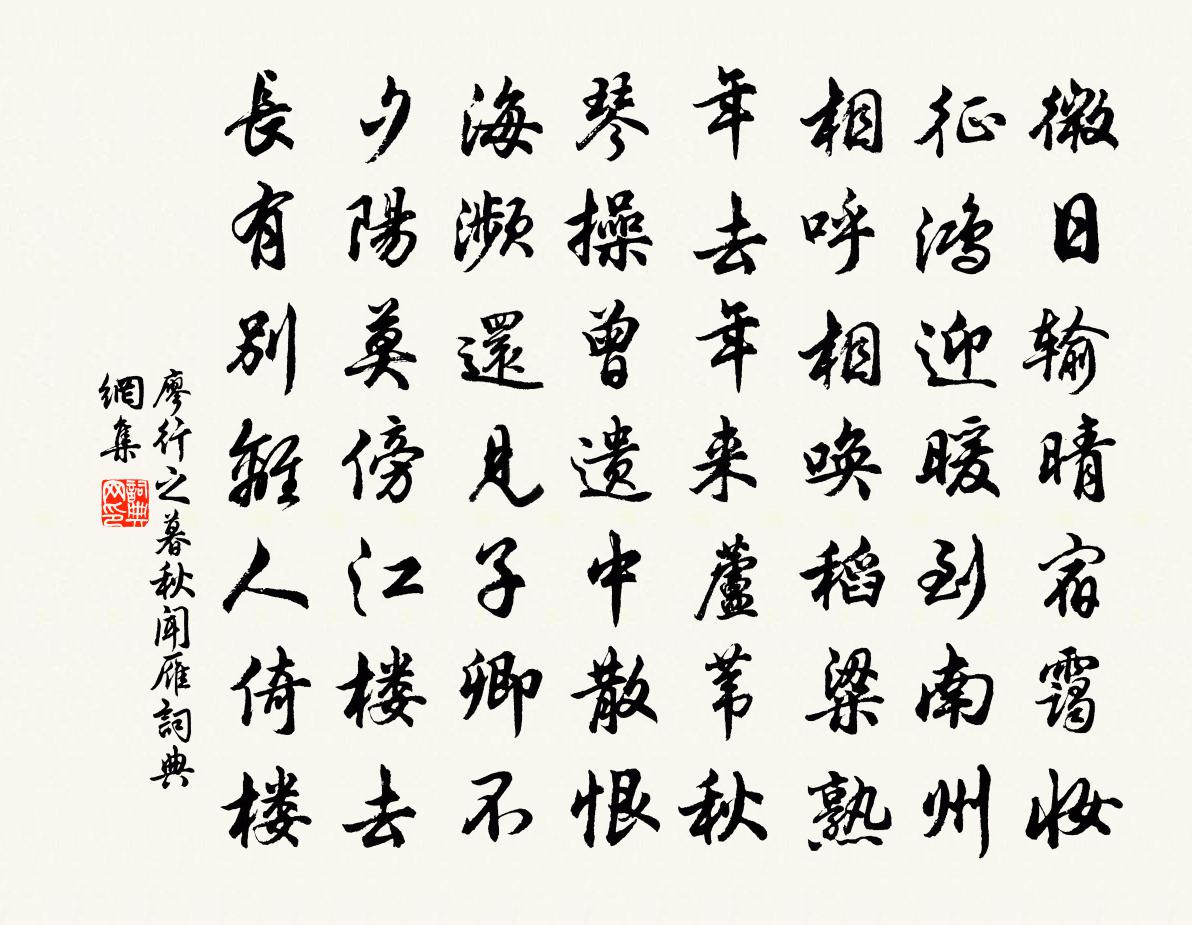 微日输晴宿靄妝
征鸿迎暖到南州
相呼相唤稻粱熟
年去年来蘆苇秋
琴操曾遗中散恨
海濒還見子卿不
夕陽莫傍江楼去
長有别離人倚楼
廖行之暮秋闻雁詞典
網集
詞典
网印